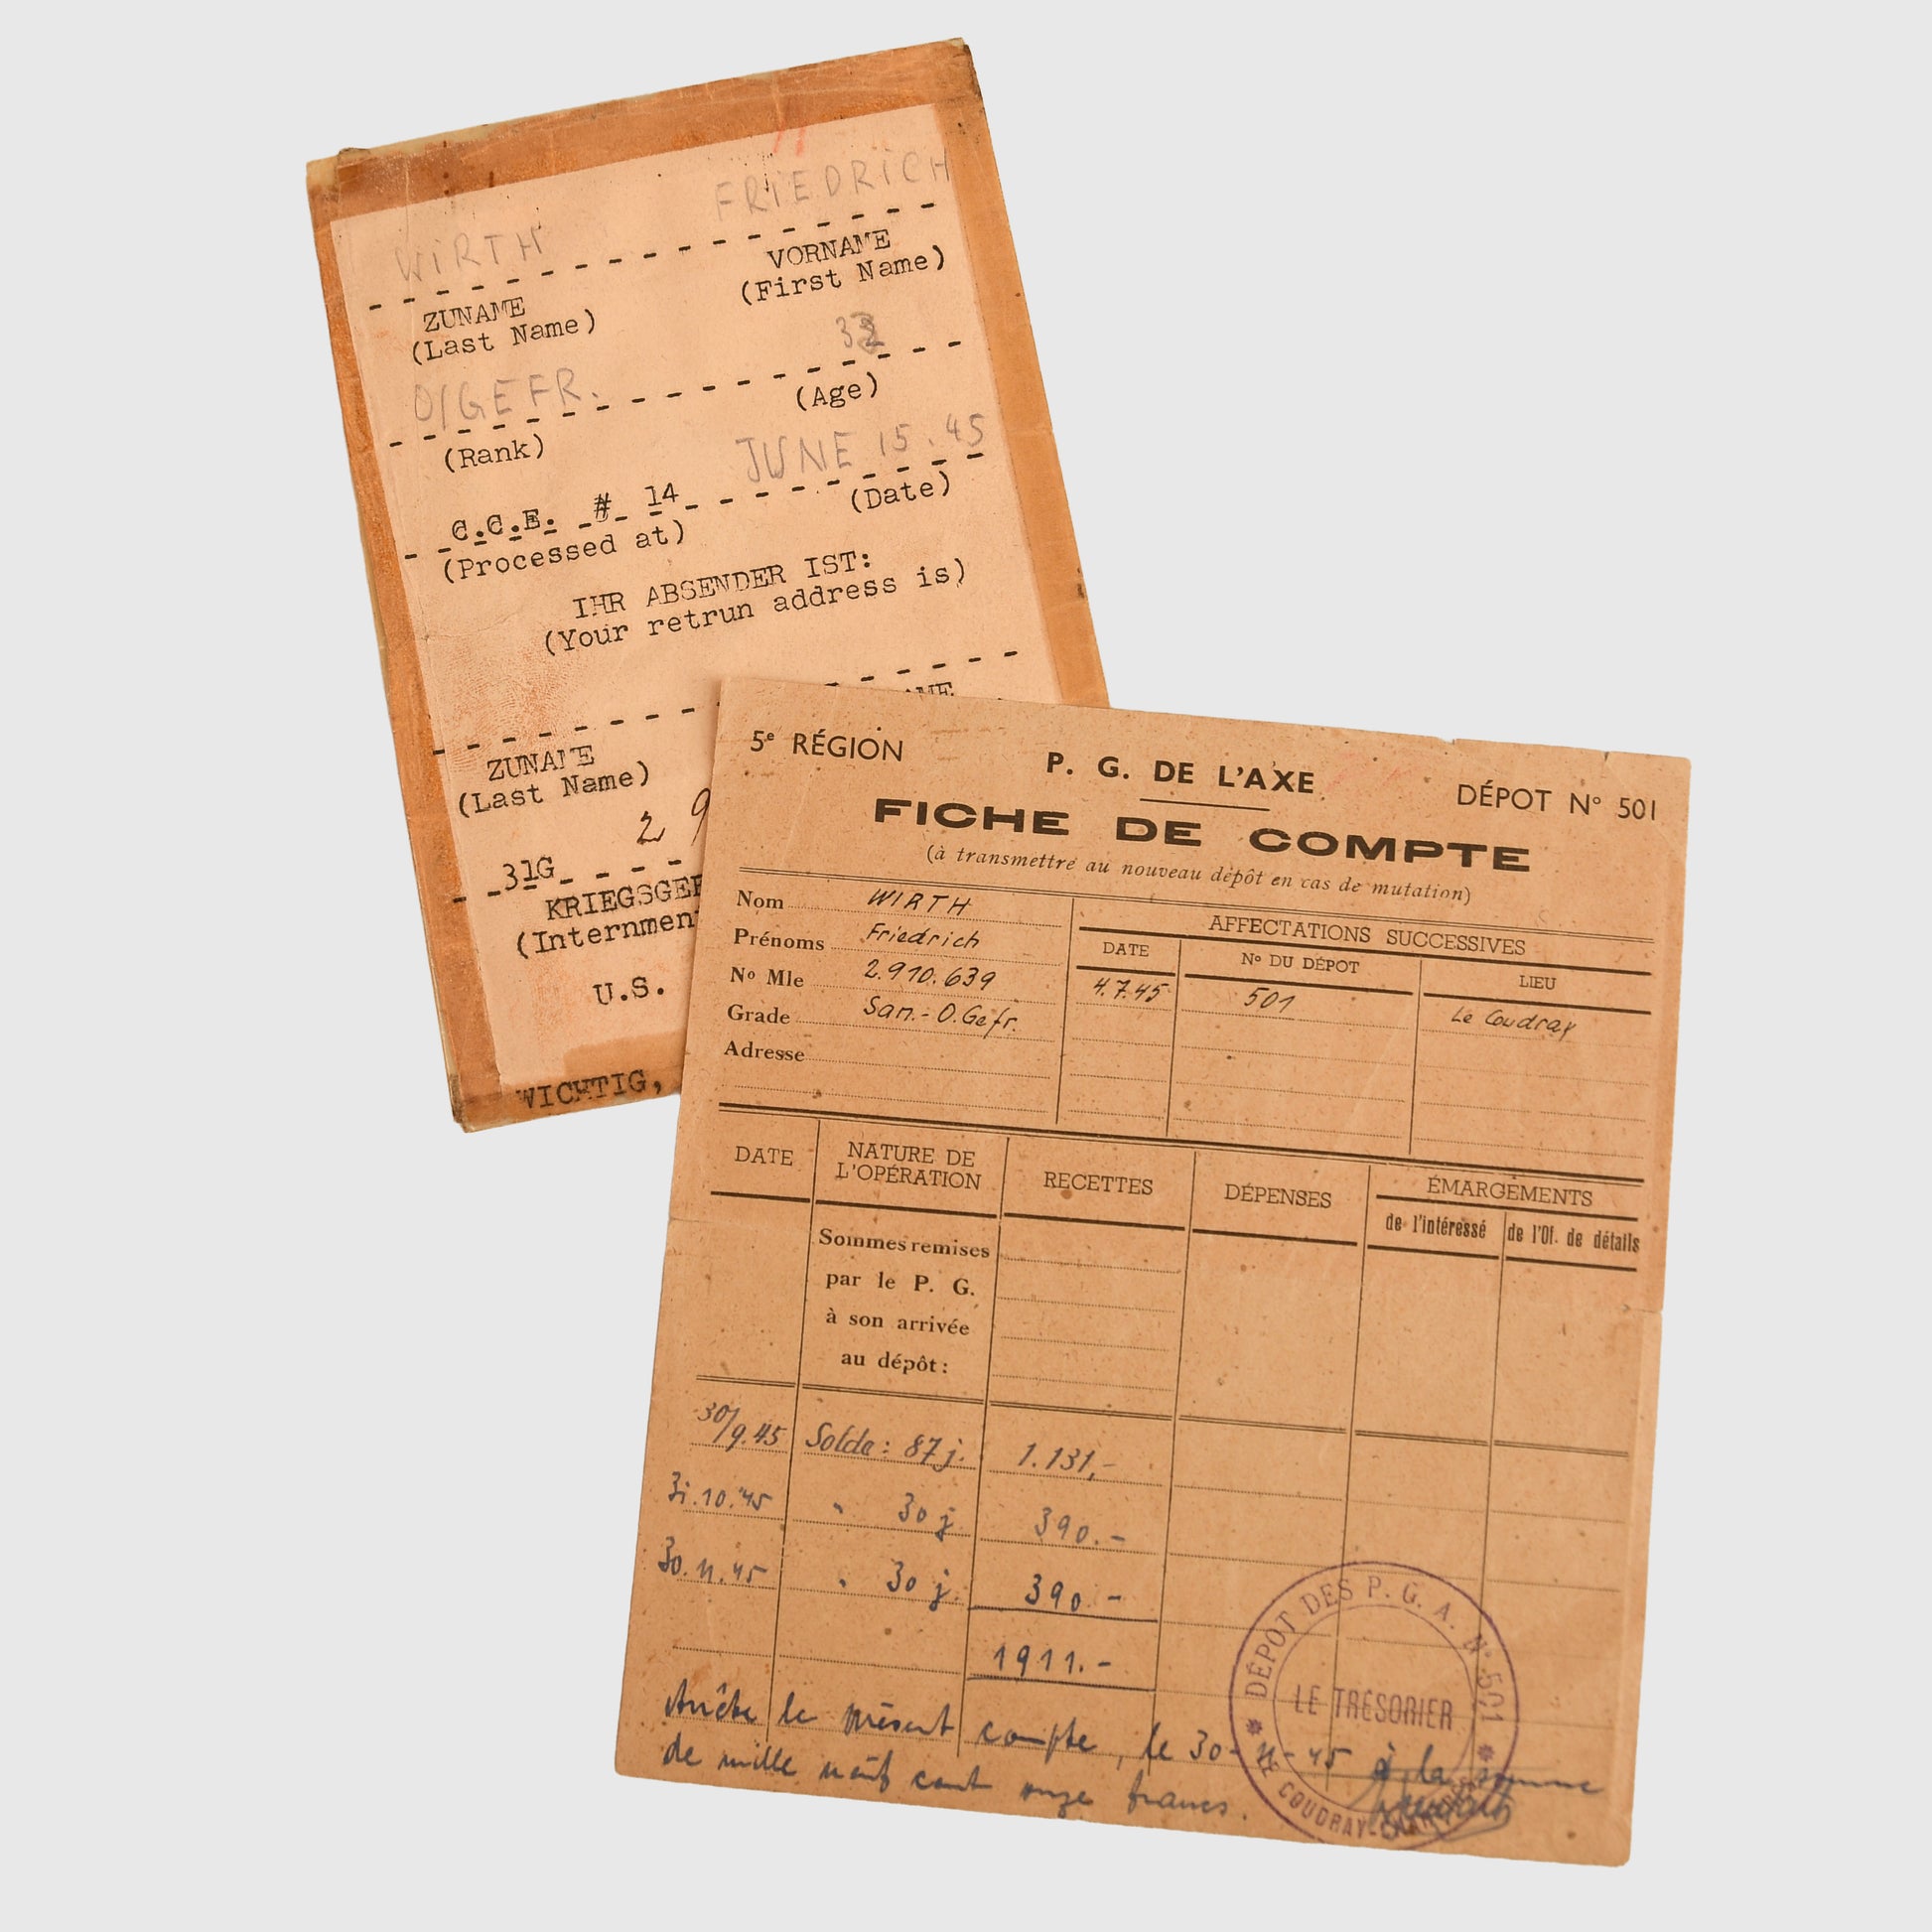 WIRTH FRIEDRICH
ZUNAME VORNAME
(Last Name) (First Name)
O/GEFR.
(Rank) (Age)
C.C.E. # 14 JUNE 15.45
(Processed at) (Date)
IHR ABSENDER IST:
(Your retrun address is)
ZUNAME
(Last Name)
2 9
31G
KRIEGSGEF
(Internmen
U.S.
WICHTIG,
5e RÉGION P. G. DE L'AXE DÉPOT No 501
FICHE DE COMPTE
(à transmettre au nouveau dépôt en cas de mutation)
Nom WIRTH
Prénoms Friedrich
No Mle 2.910.639
Grade San.-O.Gefr.
Adresse
AFFECTATIONS SUCCESSIVES
DATE No DU DÉPOT LIEU
4.7.45 501 Le Coudray
DATE NATURE DE L'OPÉRATION RECETTES DÉPENSES ÉMARGEMENTS
de l'intéressé de l'Of. de détails
Sommes remises
par le P. G.
à son arrivée
au dépôt:
30/9.45 Solde: 87 j. 1.131,-
31.10.45 " 30 j 390.-
30.11.45 " 30 j. 390.-
1911.-
Arrête le présent compte, le 30-11-45 à la somme
de mille neuf cent onze francs.
DÉPOT DES P. G. A. No 501
LE TRÉSORIER
LE COUDRAY-CHARTRES